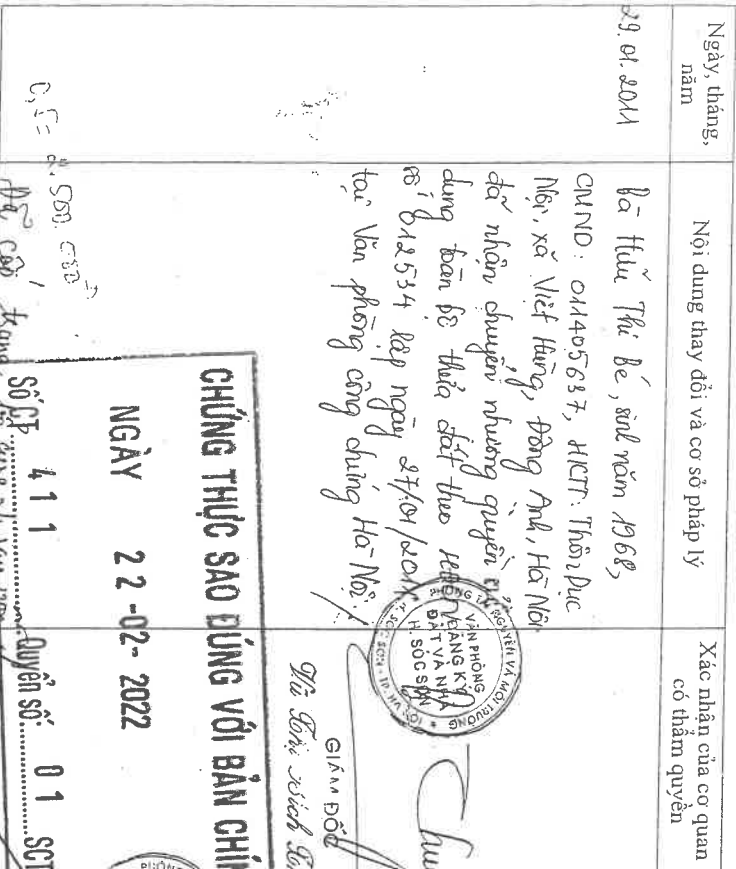 Ngày, tháng, năm
Nội dung thay đổi và cơ sở pháp lý
Xác nhận của cơ quan có thẩm quyền
29.01.2011
Bà Hữu Thị Bé, sinh năm 1968,
CMND: 011405637, HKTT: Thôn Dục
Nội, xã Việt Hùng, Đông Anh, Hà Nội
đã nhận chuyển nhượng quyền
dụng toàn bộ thửa đất theo
số 012534 lập ngày 27/01/2011
tại Văn phòng công chứng Hà Nội./
PHÒNG TÀI NGUYÊN VÀ MÔI TRƯỜNG
VĂN PHÒNG
ĐĂNG KÝ
ĐẤT VÀ NHÀ
H. SÓC SƠN
GIÁM ĐỐC
CHỨNG THỰC SAO ĐÚNG VỚI BẢN CHÍN
NGÀY 22-02-2022
Số CT 411 Quyển số: 01 SCT